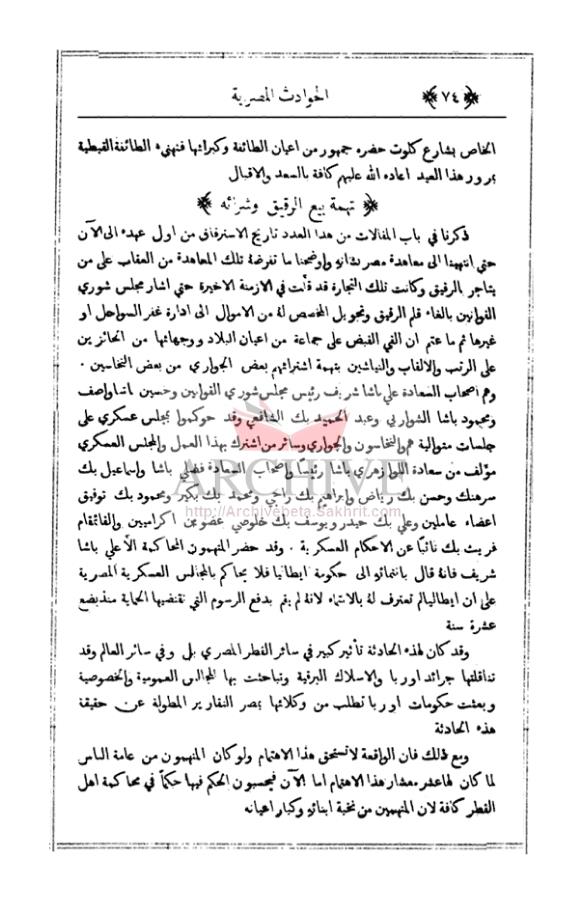 ﴿ ٧٤ ﴾ الحوادث المصرية
الخاص بشارع كلوت حضره جمهور من اعيان الطائفة وكبرائها فنهنىء الطائفة القبطية
بمرور هذا العيد اعاده الله عليهم كافة بالسعد والاقبال
﴿ تهمة بيع الرقيق وشرائه ﴾
ذكرنا في باب المقالات من هذا العدد تاريخ الاسترقاق من اول عهده الى الآن
حتى انتهينا الى معاهدة مصر بشانه واوضحنا ما تفرضهُ تلك المعاهدة من العقاب على من
يتاجر بالرقيق وكانت تلك التجارة قد قلّت في الازمنة الاخيرة حتى اشار مجلس شورى
القوانين بالغاء قلم الرقيق وتحويل المخصص لهُ من الاموال الى ادارة خفر السواحل او
غيرها ثم ما عتم ان القي القبض على جماعة من اعيان البلاد ووجهائها من الحائزين
على الرتب والالقاب والنياشين بتهمة اشترائهم بعض الجواري من بعض النخاسين .
وهم اصحاب السعادة علي باشا شريف رئيس مجلس شورى القوانين وحسين باشا واصف
ومحمود باشا الشواربي وعبد الحميد بك الشافعي وقد حوكموا بمجلس عسكري على
جلسات متوالية هم والنخاسون والجواري وسائر من اشترك بهذا العمل والمجلس العسكري
مؤلف من سعادة اللوا زهري باشا رئيسًا واصحاب السعادة فضلي باشا واسماعيل بك
سرهنك وحسن بك رياض وابراهيم بك راجي ومحمد بك بكير ومحمود بك توفيق
اعضاء عاملين وعلي بك حيدر ويوسف بك خلوصي عضوين اكراميين والقائمقام
فريث بك نائبًا عن الاحكام العسكرية . وقد حضر المتهمون المحاكمة الاَّ علي باشا
شريف فانهُ قال بانتمائه الى حكومة ايطاليا فلا يحاكم بالمجالس العسكرية المصرية
على ان ايطاليا لم تعترف لهُ بالانتماء لانهُ لم يقم بدفع الرسوم التي تقتضيها الحماية منذ بضع
عشرة سنة
وقد كان لهذه الحادثة تأثير كبير في سائر القطر المصري بل وفي سائر العالم وقد
تناقلتها جرائد اوربا والاسلاك البرقية وتباحثت بها المجالس العمومية والخصوصية
وبعثت حكومات اوربا تطلب من وكلائها بمصر التقارير المطولة عن حقيقة
هذه الحادثة
ومع ذلك فان الواقعة لا تستحق هذا الاهتمام ولو كان المتهمون من عامة الناس
لما كان لها عشر معشار هذا الاهتمام اما الآن فيحسبون الحكم فيها حكمًا في محاكمة اهل
القطر كافة لان المتهمين من نخبة ابنائه وكبار اعيانه
ARCHIVE
http://Archivebeta.Sakhrit.com